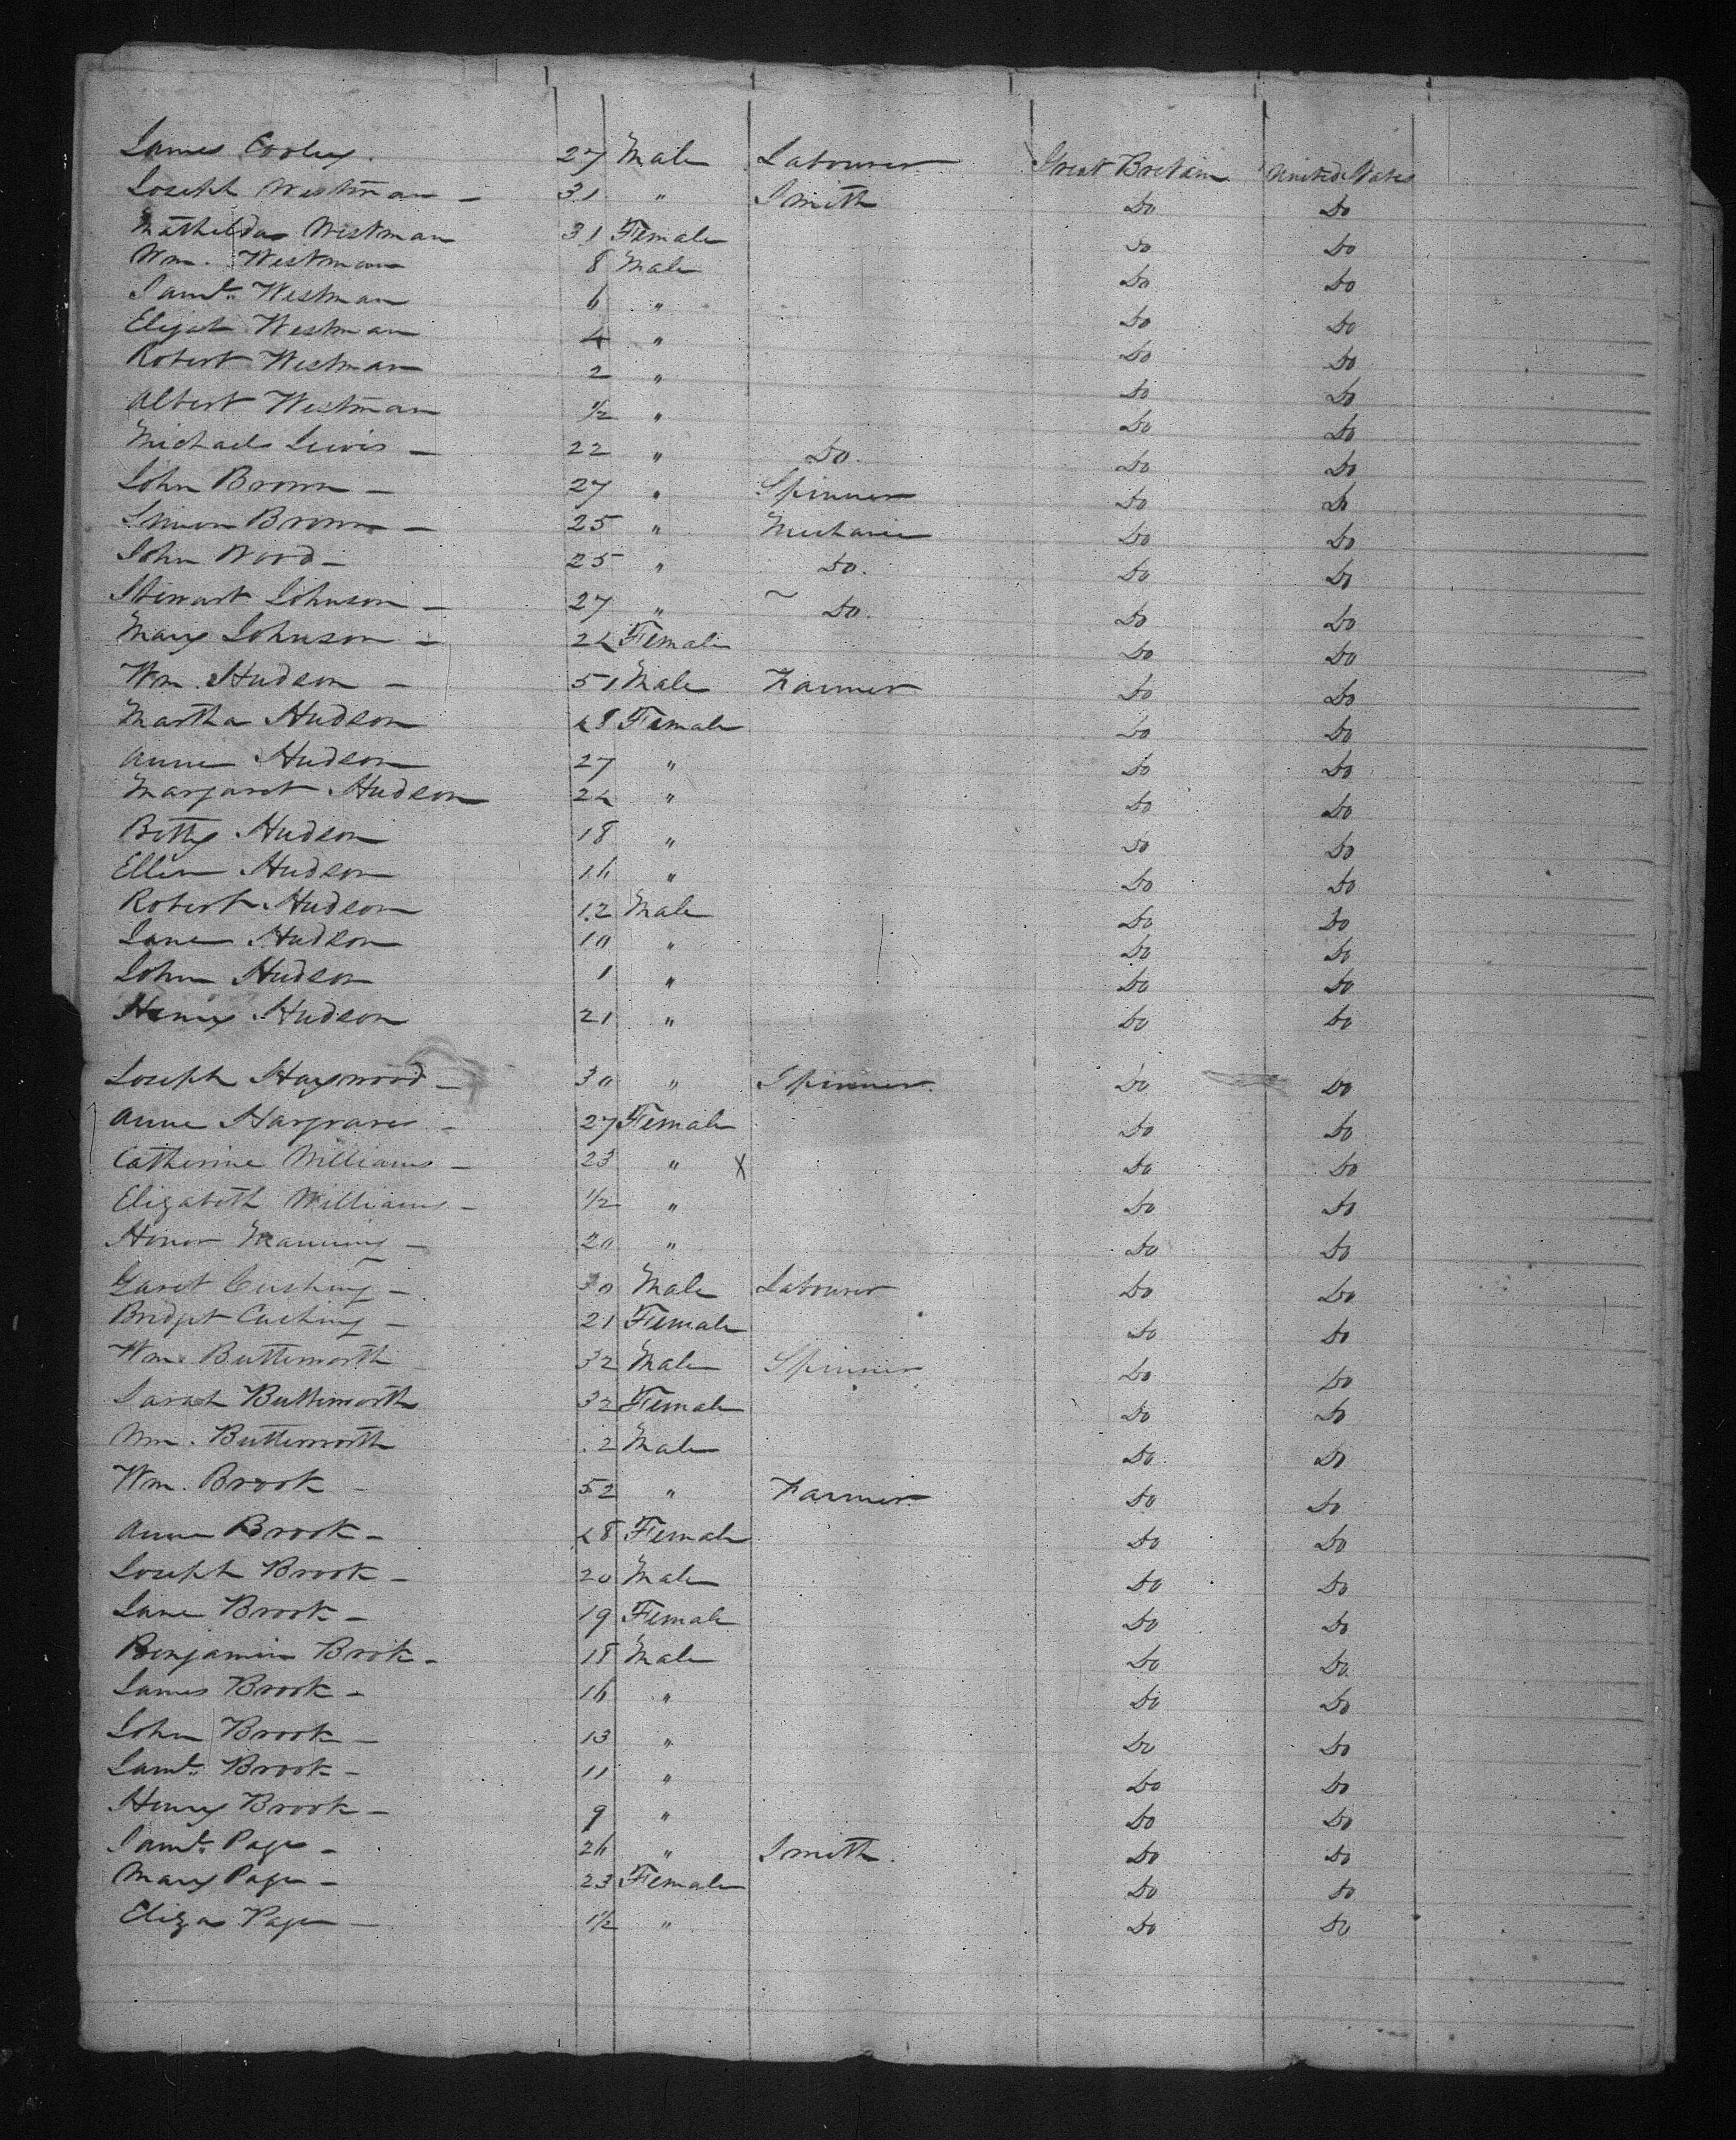 James Cooley. 27 Male Labourer Great Britain United States
Joseph Westman - 31 " Smith Do Do
Mathilda Westman 31 Female Do Do
Wm. Westman 8 Male Do Do
Saml. Westman 6 " Do Do
Elijah Westman 4 " Do Do
Robert Westman 2 " Do Do
Albert Westman 1/2 " Do Do
Michael Lewis - 22 " Do. Do Do
John Brown - 27 " Spinner Do Do
Simon Brown - 25 " Mechanic Do Do
John Wood - 25 " Do. Do Do
Stewart Johnson - 27 " Do. Do Do
Mary Johnson - 24 Female Do Do
Wm. Hudson - 51 Male Farmer Do Do
Martha Hudson 48 Female Do Do
Anne Hudson 27 " Do Do
Margaret Hudson 24 " Do Do
Betty Hudson 18 " Do Do
Ellen Hudson 16 " Do Do
Robert Hudson 12 Male Do Do
Jane Hudson 10 " Do Do
John Hudson 1 " Do Do
Henry Hudson 21 " Do Do
Joseph Haywood - 30 " Spinner. Do Do
Anne Hargraves - 27 Female Do Do
Catherine Williams - 23 " X Do Do
Elizabeth Williams - 1/2 " Do Do
Honor Manning - 20 " Do Do
Garet Cushing - 30 Male Labourer Do Do
Bridget Cushing - 21 Female Do Do
Wm. Butterworth 32 Male Spinner Do Do
Sarah Butterworth 32 Female Do Do
Wm. Butterworth 2 Male Do Do
Wm. Brook - 52 " Farmer Do Do
Anne Brook - 48 Female Do Do
Joseph Brook - 20 Male Do Do
Jane Brook - 19 Female Do Do
Benjamin Brok - 18 Male Do Do
James Brook - 16 " Do Do
John Brook - 13 " Do Do
Saml. Brook - 11 " Do Do
Henry Brook - 9 " Do Do
Saml. Page - 26 " Smith. Do Do
Mary Page - 23 Female Do Do
Eliza Page - 1 1/2 " Do Do